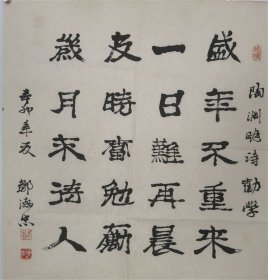 陶渊明詩勸學
盛年不重来
一日難再晨
及時當勉勵
歲月不待人
辛卯年夏
鄭